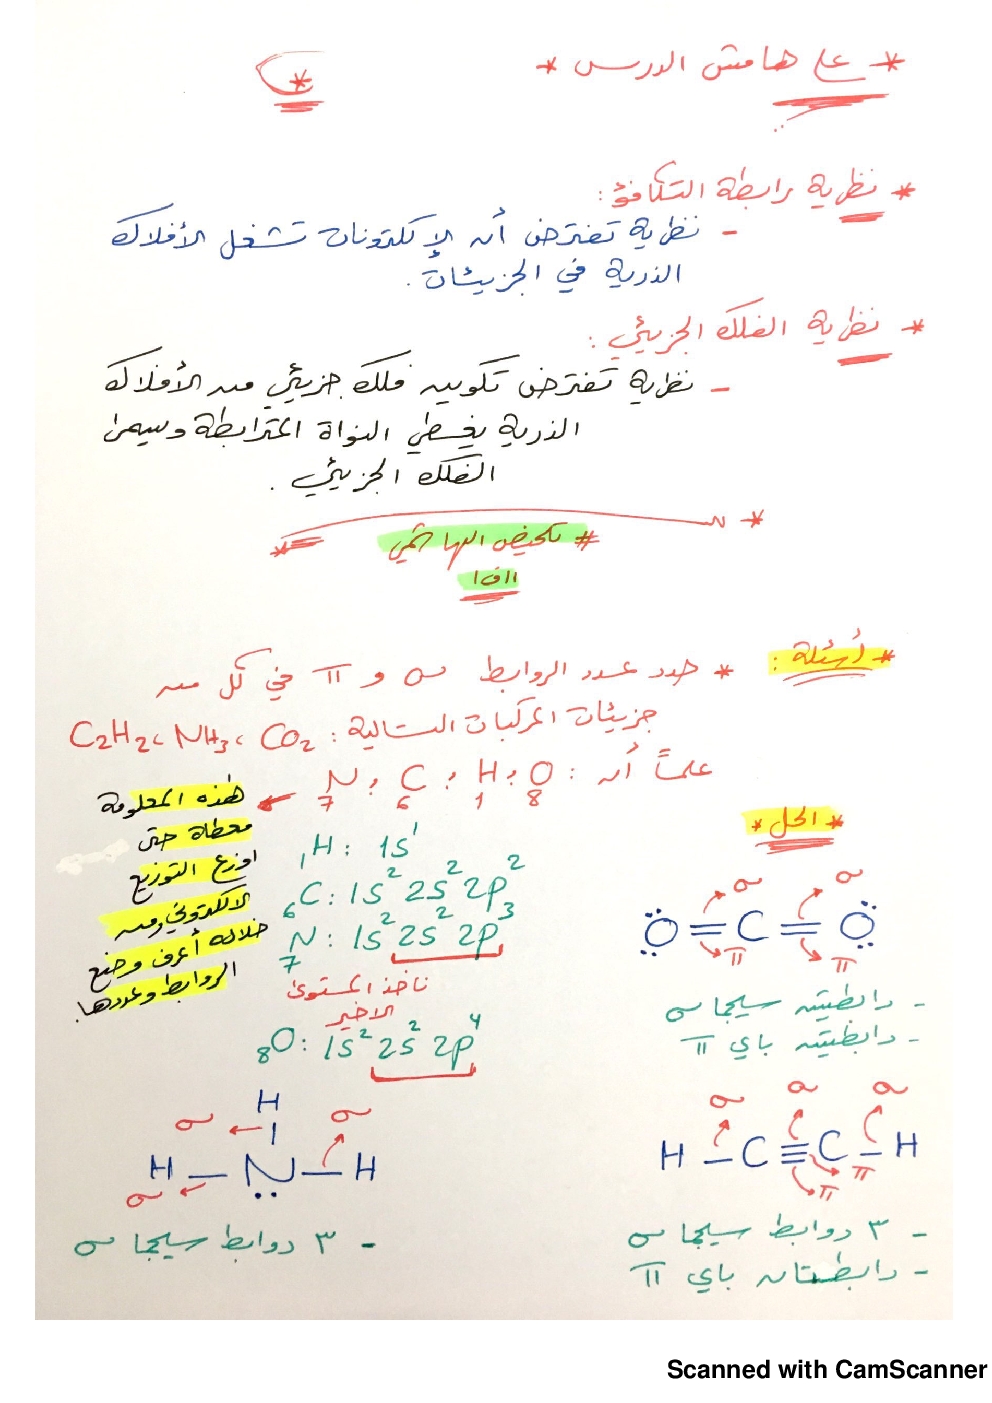 * على هامش الدرس *
* نظرية رابطة التكافؤ :
- نظرية تفترض أن الإلكترونات تشغل الأفلاك
الذرية في الجزيئات .
* نظرية الفلك الجزيئي :
- نظرية تفترض تكوين فلك جزيئي من الأفلاك
الذرية يغطي النواة المترابطة وسمى
الفلك الجزيئي .
# تلخيص الهاشمي
* أسئلة :
* حدد عدد الروابط σ و π في كل من
جزيئات المركبات التالية : CO₂ ، NH₃ ، C₂H₂
علماً أن : ₈O ، ₁H ، ₆C ، ₇N
هذه المعلومة
معطاة حتى
اوزع التوزيع
الالكتروني ومن
خلاله أعرف وضع
الروابط وعددها.
₁H : 1s¹
₆C : 1s² 2s² 2p²
₇N : 1s² 2s² 2p³
ناخذ المستوى
الاخير
₈O : 1s² 2s² 2p⁴
* الحل *
σ σ
O = C = O
π π
- رابطتين سيجما σ
- رابطتين باي π
σ σ σ
H – C ≡ C – H
π π
- ٣ روابط سيجما σ
- رابطتان باي π
H
σ σ
H – N – H
σ
- ٣ روابط سيجما σ
Scanned with CamScanner